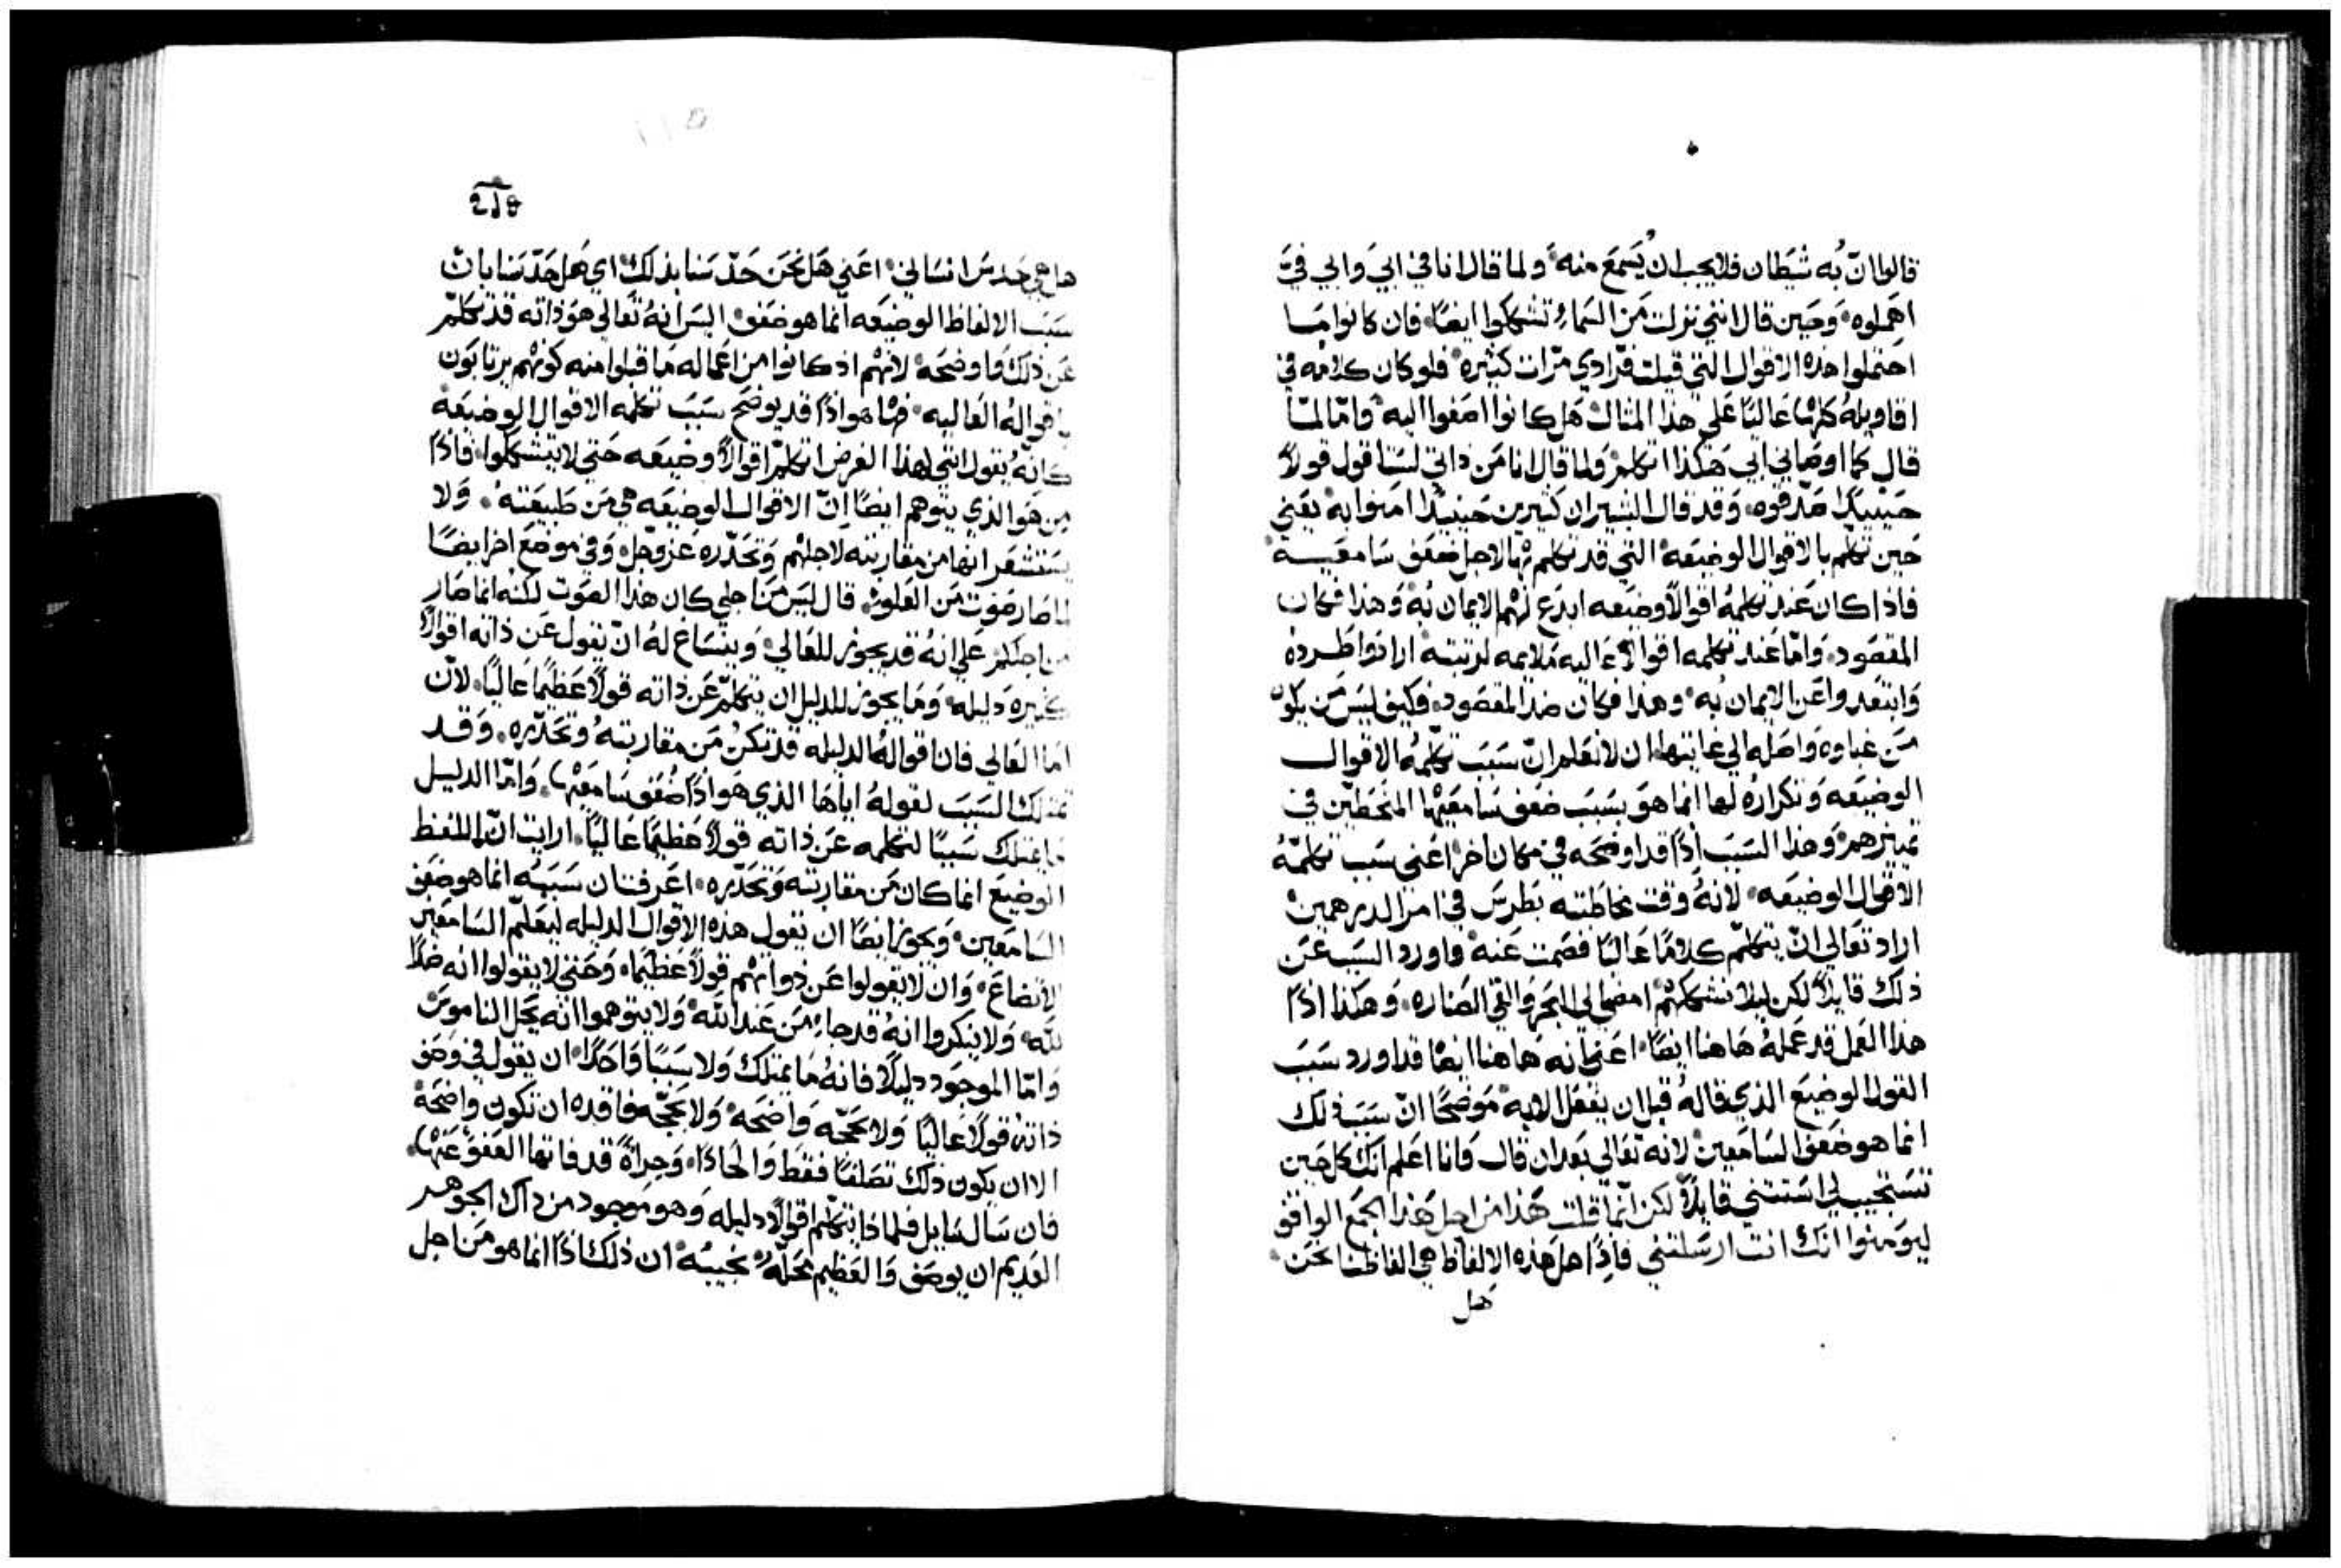 قالوا انّ به شيطان فلا يجب ان يُسمَع منه ولما قال انا في ابي وابي فيَّ
اهملوه وحين قال انني نزلت من السماء تشككوا ايضًا فان كانوا ما
احتملوا هذه الاقوال التي قيلت فرادي مرّات كثيره فلو كان كلامه في
اقاويله كلها عاليًا علي هذا المثال هل كانوا اصغوا اليه وامّا لمّا
قال كما اوصاني ابي هكذا اتكلم ولما قال انا من ذاتي لست اقول قولاً
حينيذٍ صدقوه وقد قال البشير ان كثيرين حينيذٍ امنوا به يعني
حين تكلم بالاقوال الوضيعه التي قد تكلم بها لاجل ضعف سامعيه
فاذا كان عند تكلمه اقوالاً وضيعه ابدع لهم الايمان به وهذا فكان
المقصود وامّا عند تكلمه اقوالاً عاليه ملايمه لرتبته ارادوا طرده
وابتعدوا عن الايمان به وهذا فكان ضد المقصود فكيف ليس من يكون
من غباوه واصله الي غايتها ان لا نعلم انّ سبب تكلمه الاقوال
الوضيعه وتكراره لها انما هو بسبب ضعف سامعيها المنحطين في
تمييزهم وهذا السبب اذًا قد اوضحه في مكان اخر اعني سبب تكلمه
الاقوال الوضيعه لانه وقت مخاطبته بطرس في امر الدرهمين
اراد تعالي انّ يتكلم كلامًا عاليًا فصمت عنه واورد السبب عن
ذلك قايلاً لكن ليلا نشككهم امضي الي البحر والقي الصناره وهكذا اذًا
هذا العمل قد عمله هاهنا ايضًا اعني انه هاهنا ايضًا قد اورد سبب
القول الوضيع الذي قاله قبل ان يفعل الايه موضحًا انّ سبب ذلك
انما هو ضعف السامعين لانه تعالي بعد ان قال وانا اعلم انك كل حين
تستجيب لي استثني قايلاً لكن انّما قلت هذا من اجل هذا الجمع الواقف
ليومنوا انك انت ارسلتني فاذًا هل هذه الالفاظ هي الفاظنا نحن
هل
هل هي حدس انساني اعني هل نحن حدّسنا بذلك اي هل حدّسنا بانّ
سبب الالفاظ الوضيعه انما هو ضعف اليس انه تعالي هو ذاته قد تكلّم
عن ذلك واوضحه لانهم اذ كانوا من اعماله ما قبلوا منه كونهم يرتابون
باقواله العاليه فها هو اذًا قد يوضح سبب تكلمه الاقوال الوضيعه
كانّه يقول انني لهذا الغرض اتكلم اقوالاً وضيعه حتي لا يتشككوا فاذًا
من هو الذي يتوهم ايضًا انّ الاقوال الوضيعه هي من طبيعته ولا
يستشعر انها من مقاربته لاجلهم وتحدّره عز وجل وفي موضع اخر ايضًا
لما صار صوت من العلو قال ليس من اجلي كان هذا الصوت لكنه انما صار
من اجلكم علي انه قد يجوز للعالي وينساغ له ان يقول عن ذاته اقوالاً
كثيره دليله وما يجوز للدليل ان يتكلّم عن ذاته قولاً عظيمًا عاليًا لانّ
امّا العالي فان اقواله الدليله قد تكون من مقاربته وتحدّره وقد
تمتلك السبب لقوله اياها الذي هو اذًا ضعف سامعيها وامّا الدليل
ما يمتلك سببًا لتكلمه عن ذاته قولاً عظيمًا عاليًا ارايت انّ اللفظ
الوضيع انما كان من مقاربته وتحدّره اعرفت ان سببه انما هو ضعف
السامعين ويجوز ايضًا ان تقول هذه الاقوال الدليله ليعلّم السامعين
الاتضاع وان لا يقولوا عن ذواتهم قولاً عظيمًا وحتي لا يقولوا انه ضدًا
لله ولا ينكروا انه قد جا من عند الله ولا يتوهموا انه يحل الناموس
وامّا الموجود دليلاً فانه ما يمتلك ولا سببًا واحدًا ان يقول في وصف
ذاته قولاً عاليًا ولا بحجّه واضحه ولا بحجّه فاقده ان تكون واضحه
الا ان يكون ذلك تصلفًا فقط والحادًا وجراةً قد فاتها العفو عنها
فان سال سايل فلماذا يتكلم اقوالاً دليله وهو موجود من ذاك الجوهر
العديم ان يوصف والعظيم محله نجيبه ان ذلك اذًا انما هو من اجل